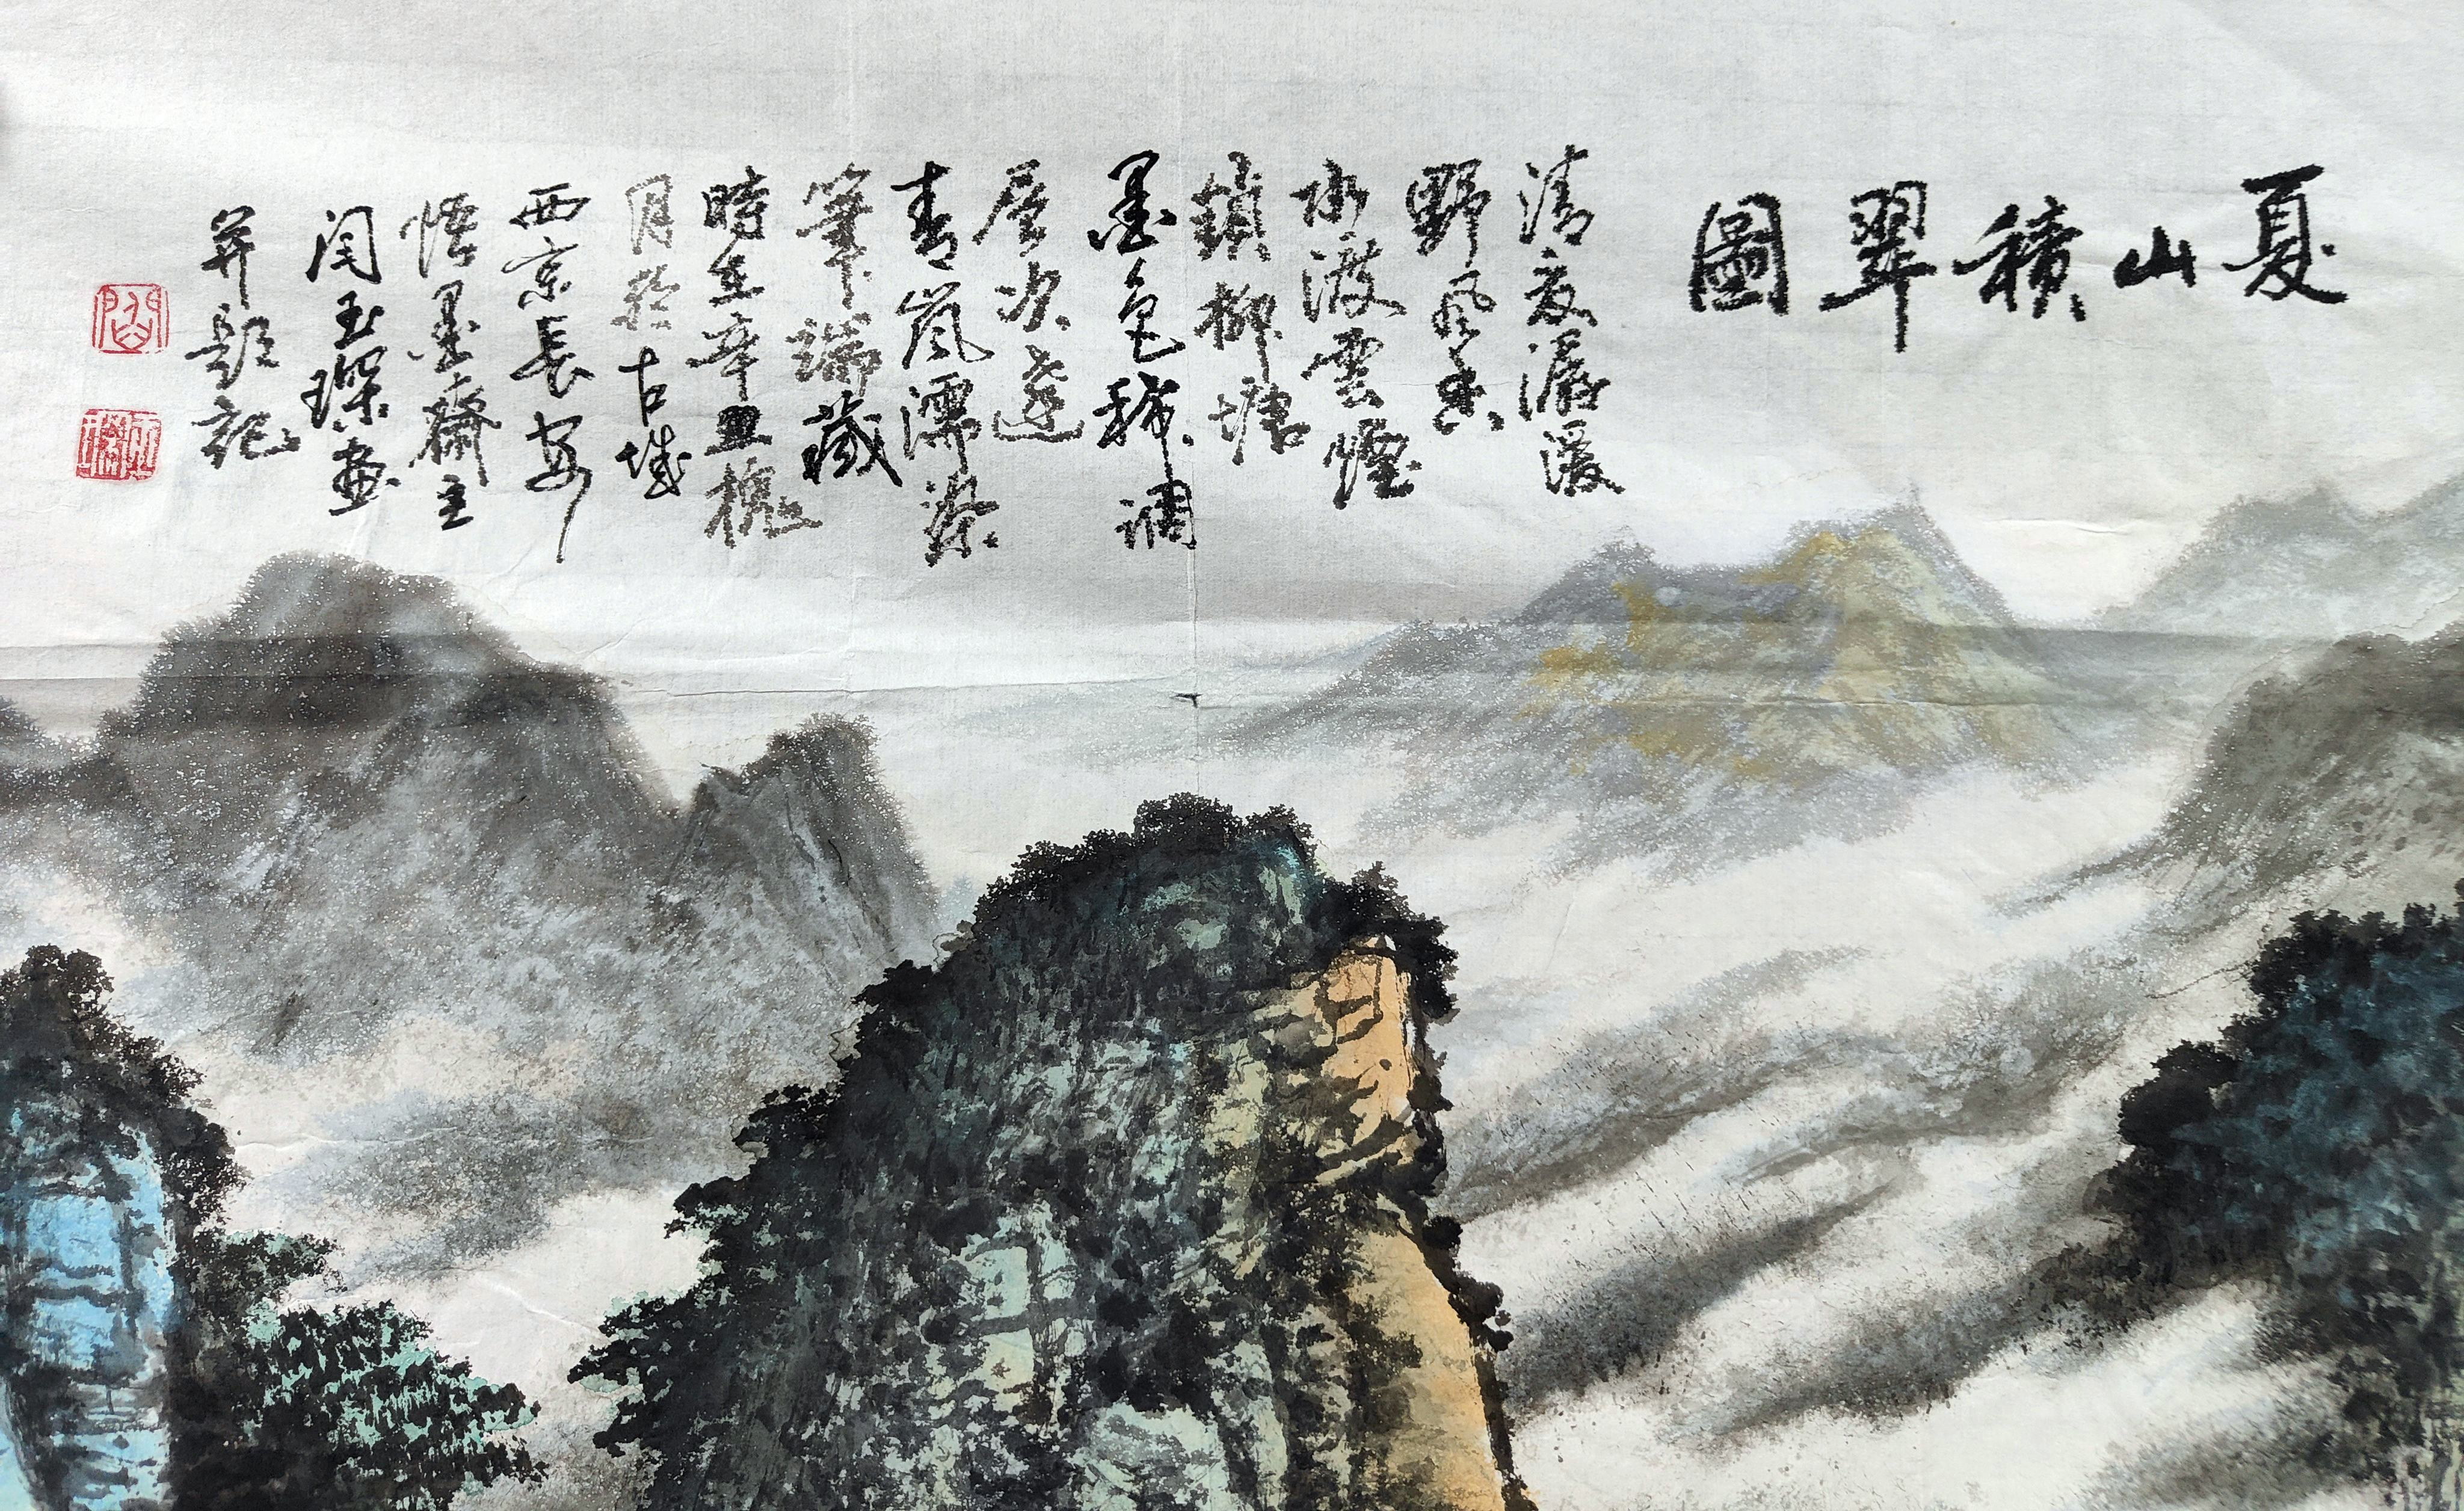 夏山積翠圖
清夏潺湲
野風香
水澂雲煙
鎖柳塘
墨色稀調
層次遠
青嵐濡染
筆端藏
時在辛丑槐
月於古城
西京長安
悟墨齋主
閆玉璨畫
并題記
閻